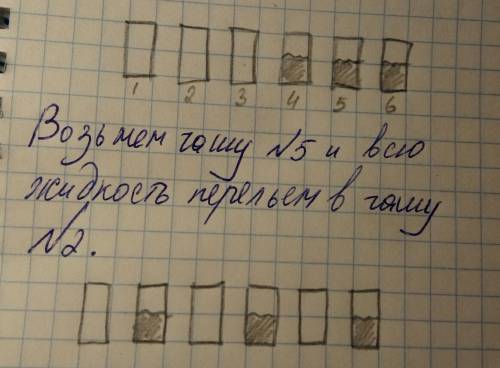 1 2 3 4 5 6
Возьмем чашу №5 и всю
жидкость перельем в чашу
№2.